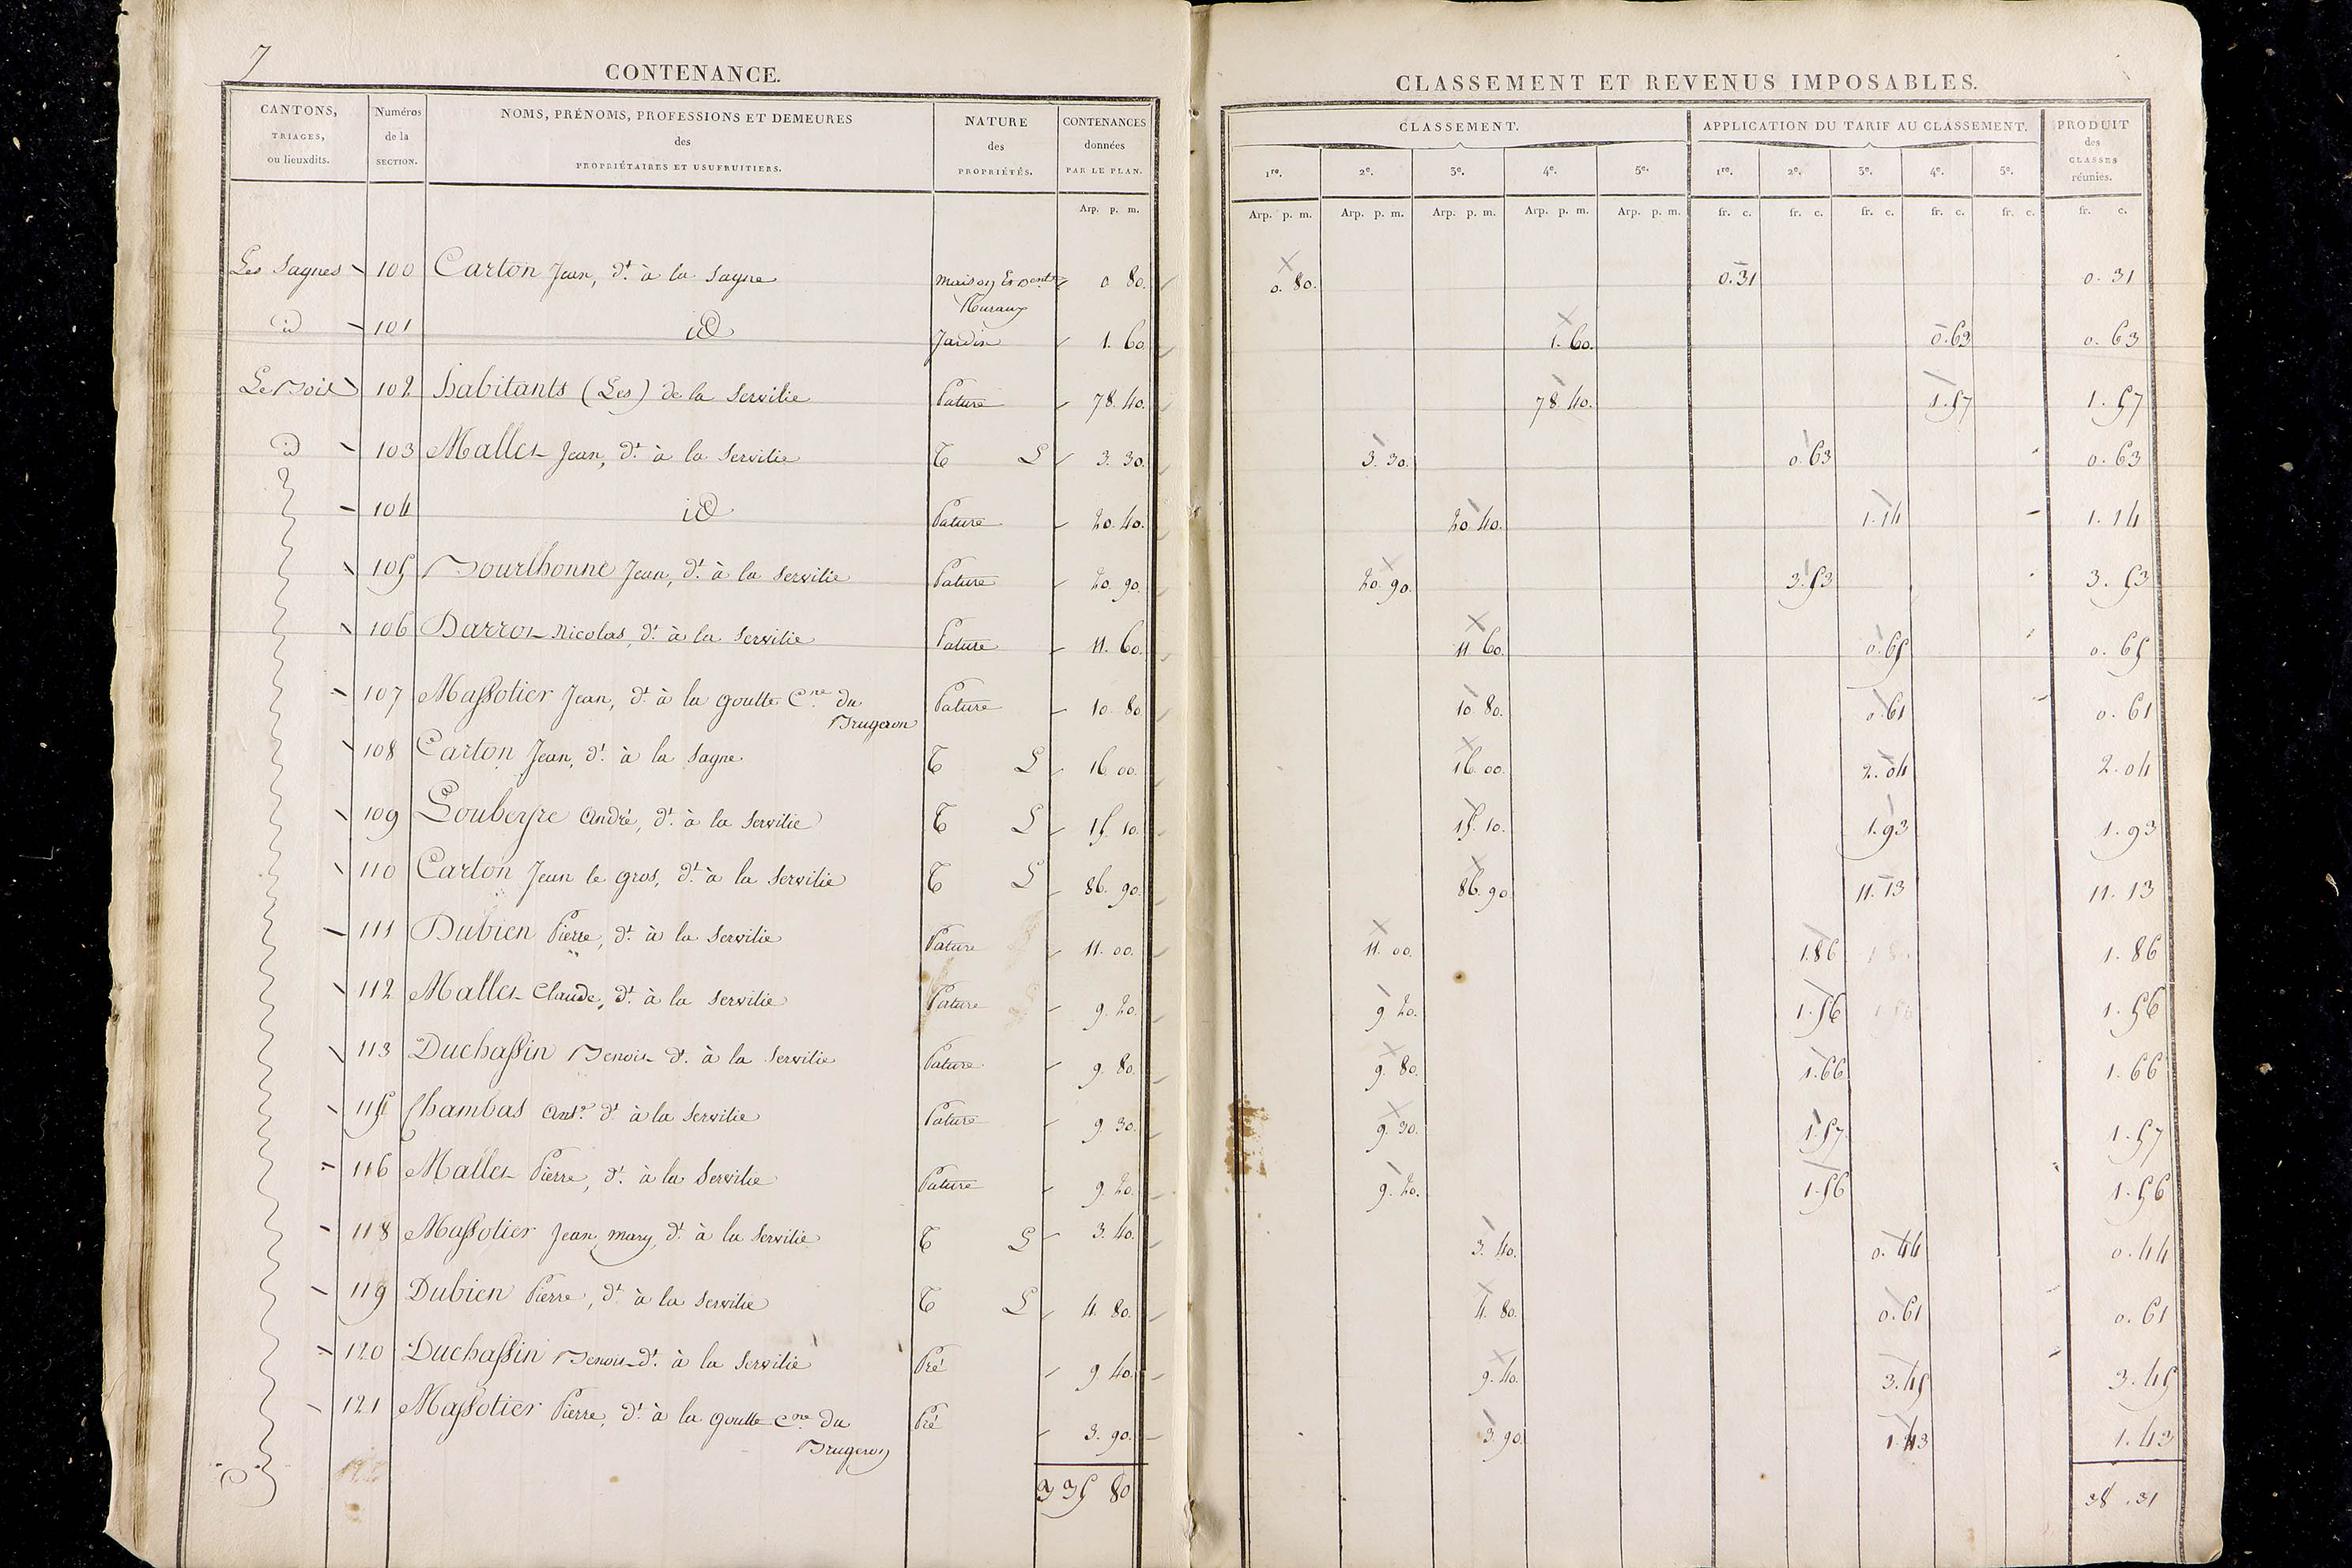 7
CONTENANCE.
CANTONS, TRIAGES, ou lieuxdits.
Numéros de la SECTION.
NOMS, PRÉNOMS, PROFESSIONS ET DEMEURES des PROPRIÉTAIRES ET USUFRUITIERS.
NATURE des PROPRIÉTÉS.
CONTENANCES données PAR LE PLAN.
Arp. p. m.
CLASSEMENT ET REVENUS IMPOSABLES.
CLASSEMENT.
APPLICATION DU TARIF AU CLASSEMENT.
PRODUIT des CLASSES réunies.
1re. 2e. 3e. 4e. 5e. 1re. 2e. 3e. 4e. 5e.
Arp. p. m. Arp. p. m. Arp. p. m. Arp. p. m. Arp. p. m. fr. c. fr. c. fr. c. fr. c. fr. c. fr. c.
Les Sagnes 100 Carton Jean, dt. à la Sagne maison Et 0 80. 0. 80. 0.31 0. 31
id 101 id Jardin 1. 60 1. 60. 0.63 0. 63
Le 102 habitants (Les) de la Servilie Pature 78. 40. 78 40. 1.57 1. 57
id 103 Mallet Jean, dt. à la Servilie T L 3. 30. 3. 30. 0.63 0. 63
104 id Pature 20. 40. 20 40. 1.14 1. 14
105 Bourlhonne Jean, dt. à la Servilie Pature 20. 90. 20. 90. 3.53 3. 53
106 Darrot Nicolas, dt. à la Servilie Pature 11. 60. 11 60. 0.65 0. 65
107 Massotier Jean, dt. à la Goutte Cne. du Brugeron Pature 10 80 10 80. 0.61 0. 61
108 Carton Jean, dt. à la Sagne T L 16 00. 16 00. 2.04 2. 04
109 Loubeyre André, dt. à la Servilie T L 15. 10. 15. 10. 1.93 1. 93
110 Carton Jean le gros, dt. à la Servilie T L 86. 90. 86. 90 11.13 11. 13
111 Dubien Pierre, dt. à la Servilie Pature 11. 00. 11. 00. 1.86 1. 86
112 Mallet Claude, dt. à la Servilie Pature 9. 20. 9. 20. 1.56 1. 56
113 Duchassin Benoit dt. à la Servilie Pature 9. 80. 9. 80. 1.66 1. 66
115 Chambas Ante. dt à la Servilie Pature 9 30. 9. 30. 1.57 1. 57
116 Mallet Pierre, dt. à la Servilie Pature 9. 20. 9. 20. 1.56 1. 56
118 Massotier Jean mary, dt. à la Servilie T L 3. 40. 3. 40. 0.44 0. 44
119 Dubien Pierre, dt. à la Servilie T L 4. 80. 4. 80. 0.61 0. 61
120 Duchassin Benoit dt. à la Servilie Pré 9 40. 9. 40. 3.45 3. 45
121 Massotier Pierre, dt. à la Goutte Cne. du Brugeron Pré 3. 90. 3. 90. 1.43 1. 43
335 80 38. 31